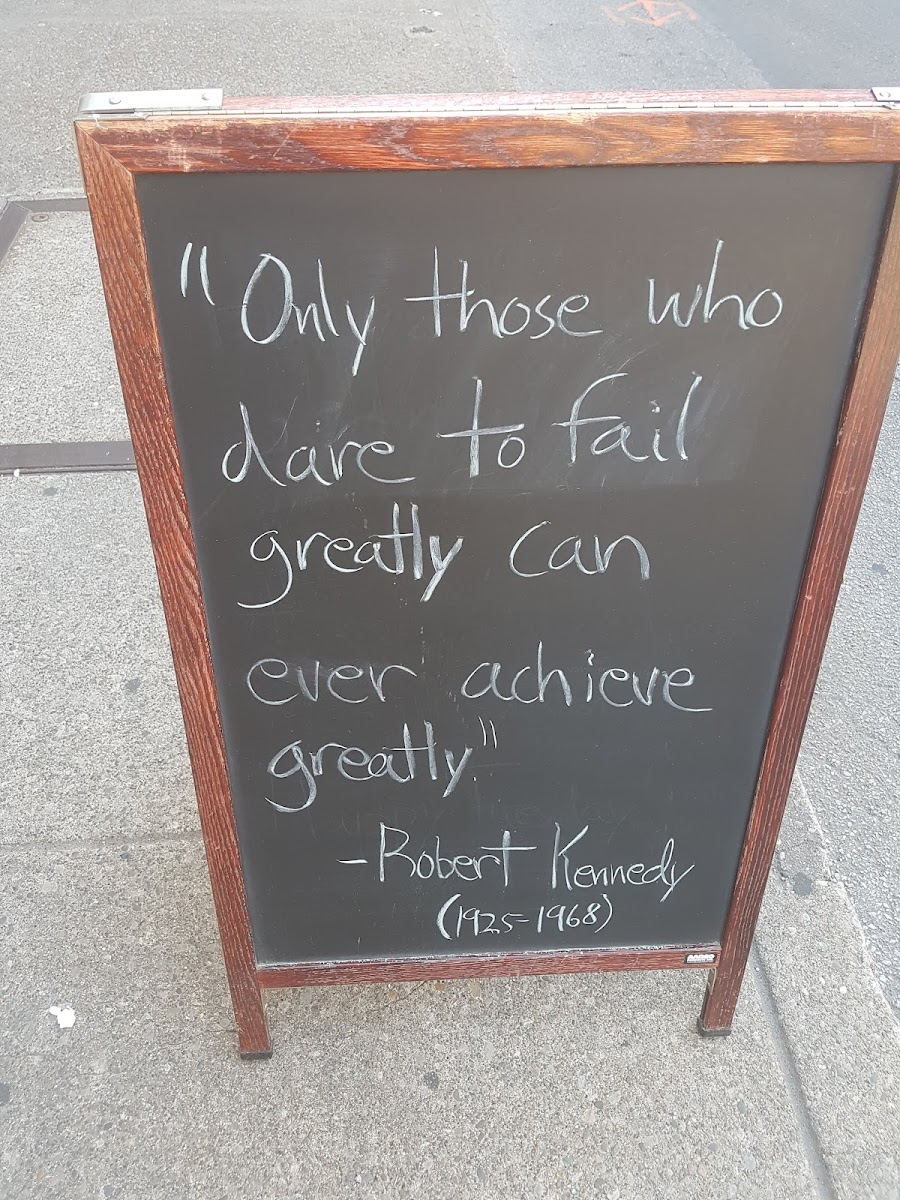 "Only those who
dare to fail
greatly can
ever achieve
greatly."
-Robert Kennedy
(1925-1968)